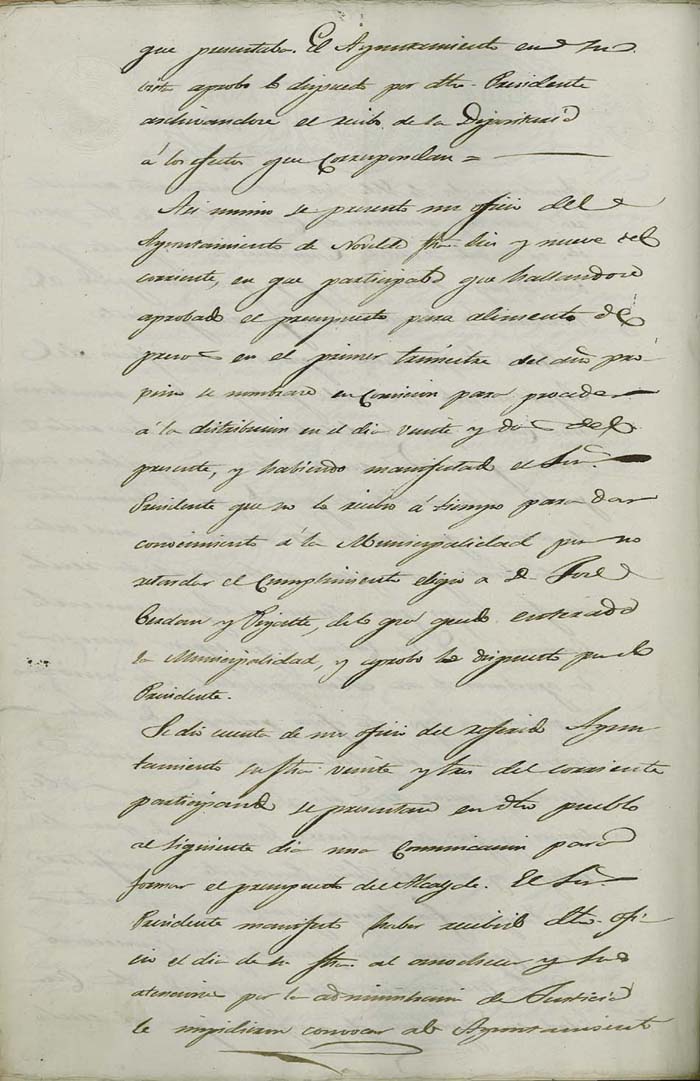 que presentaba. El Ayuntamiento en su
vista aprobo lo dispuesto por dho. Presidente
archivandose el recibo de la Depositaria
á los efectos que correspondan =
Asi mismo se presentó un oficio del
Ayuntamiento de Novelda fha. diez y nueve del
corriente, en que participaba que hallandose
aprobado el presupuesto para alimento de
presos en el primer trimestre del año pro-
pimo se nombrare en Comision para proceder
á la distribucion en el dia veinte y dos del
presente, y habiendo manifestado el Señr.
Presidente que no lo recibio á tiempo para dar
conocimiento á la Municipalidad por no
retardar el Cumplimiento eligio a D. José
Cerdan y, de lo que quedo enterada
la Municipalidad, y aprobo lo dispuesto por el
Presidente.
Se dio cuenta de un oficio del referido Ayun-
tamiento su fha. veinte y tres del corriente
participando se presentara en dho. pueblo
al siguiente dia una Comunicacion para
formar el presupuesto del Alcayde. El Señr.
Presidente manifestó haber recibido dho. ofi-
cio el dia de su fha. al anochecer y sus
atenciones por la administracion de Justicia
le impidieron convocar al Ayuntamiento